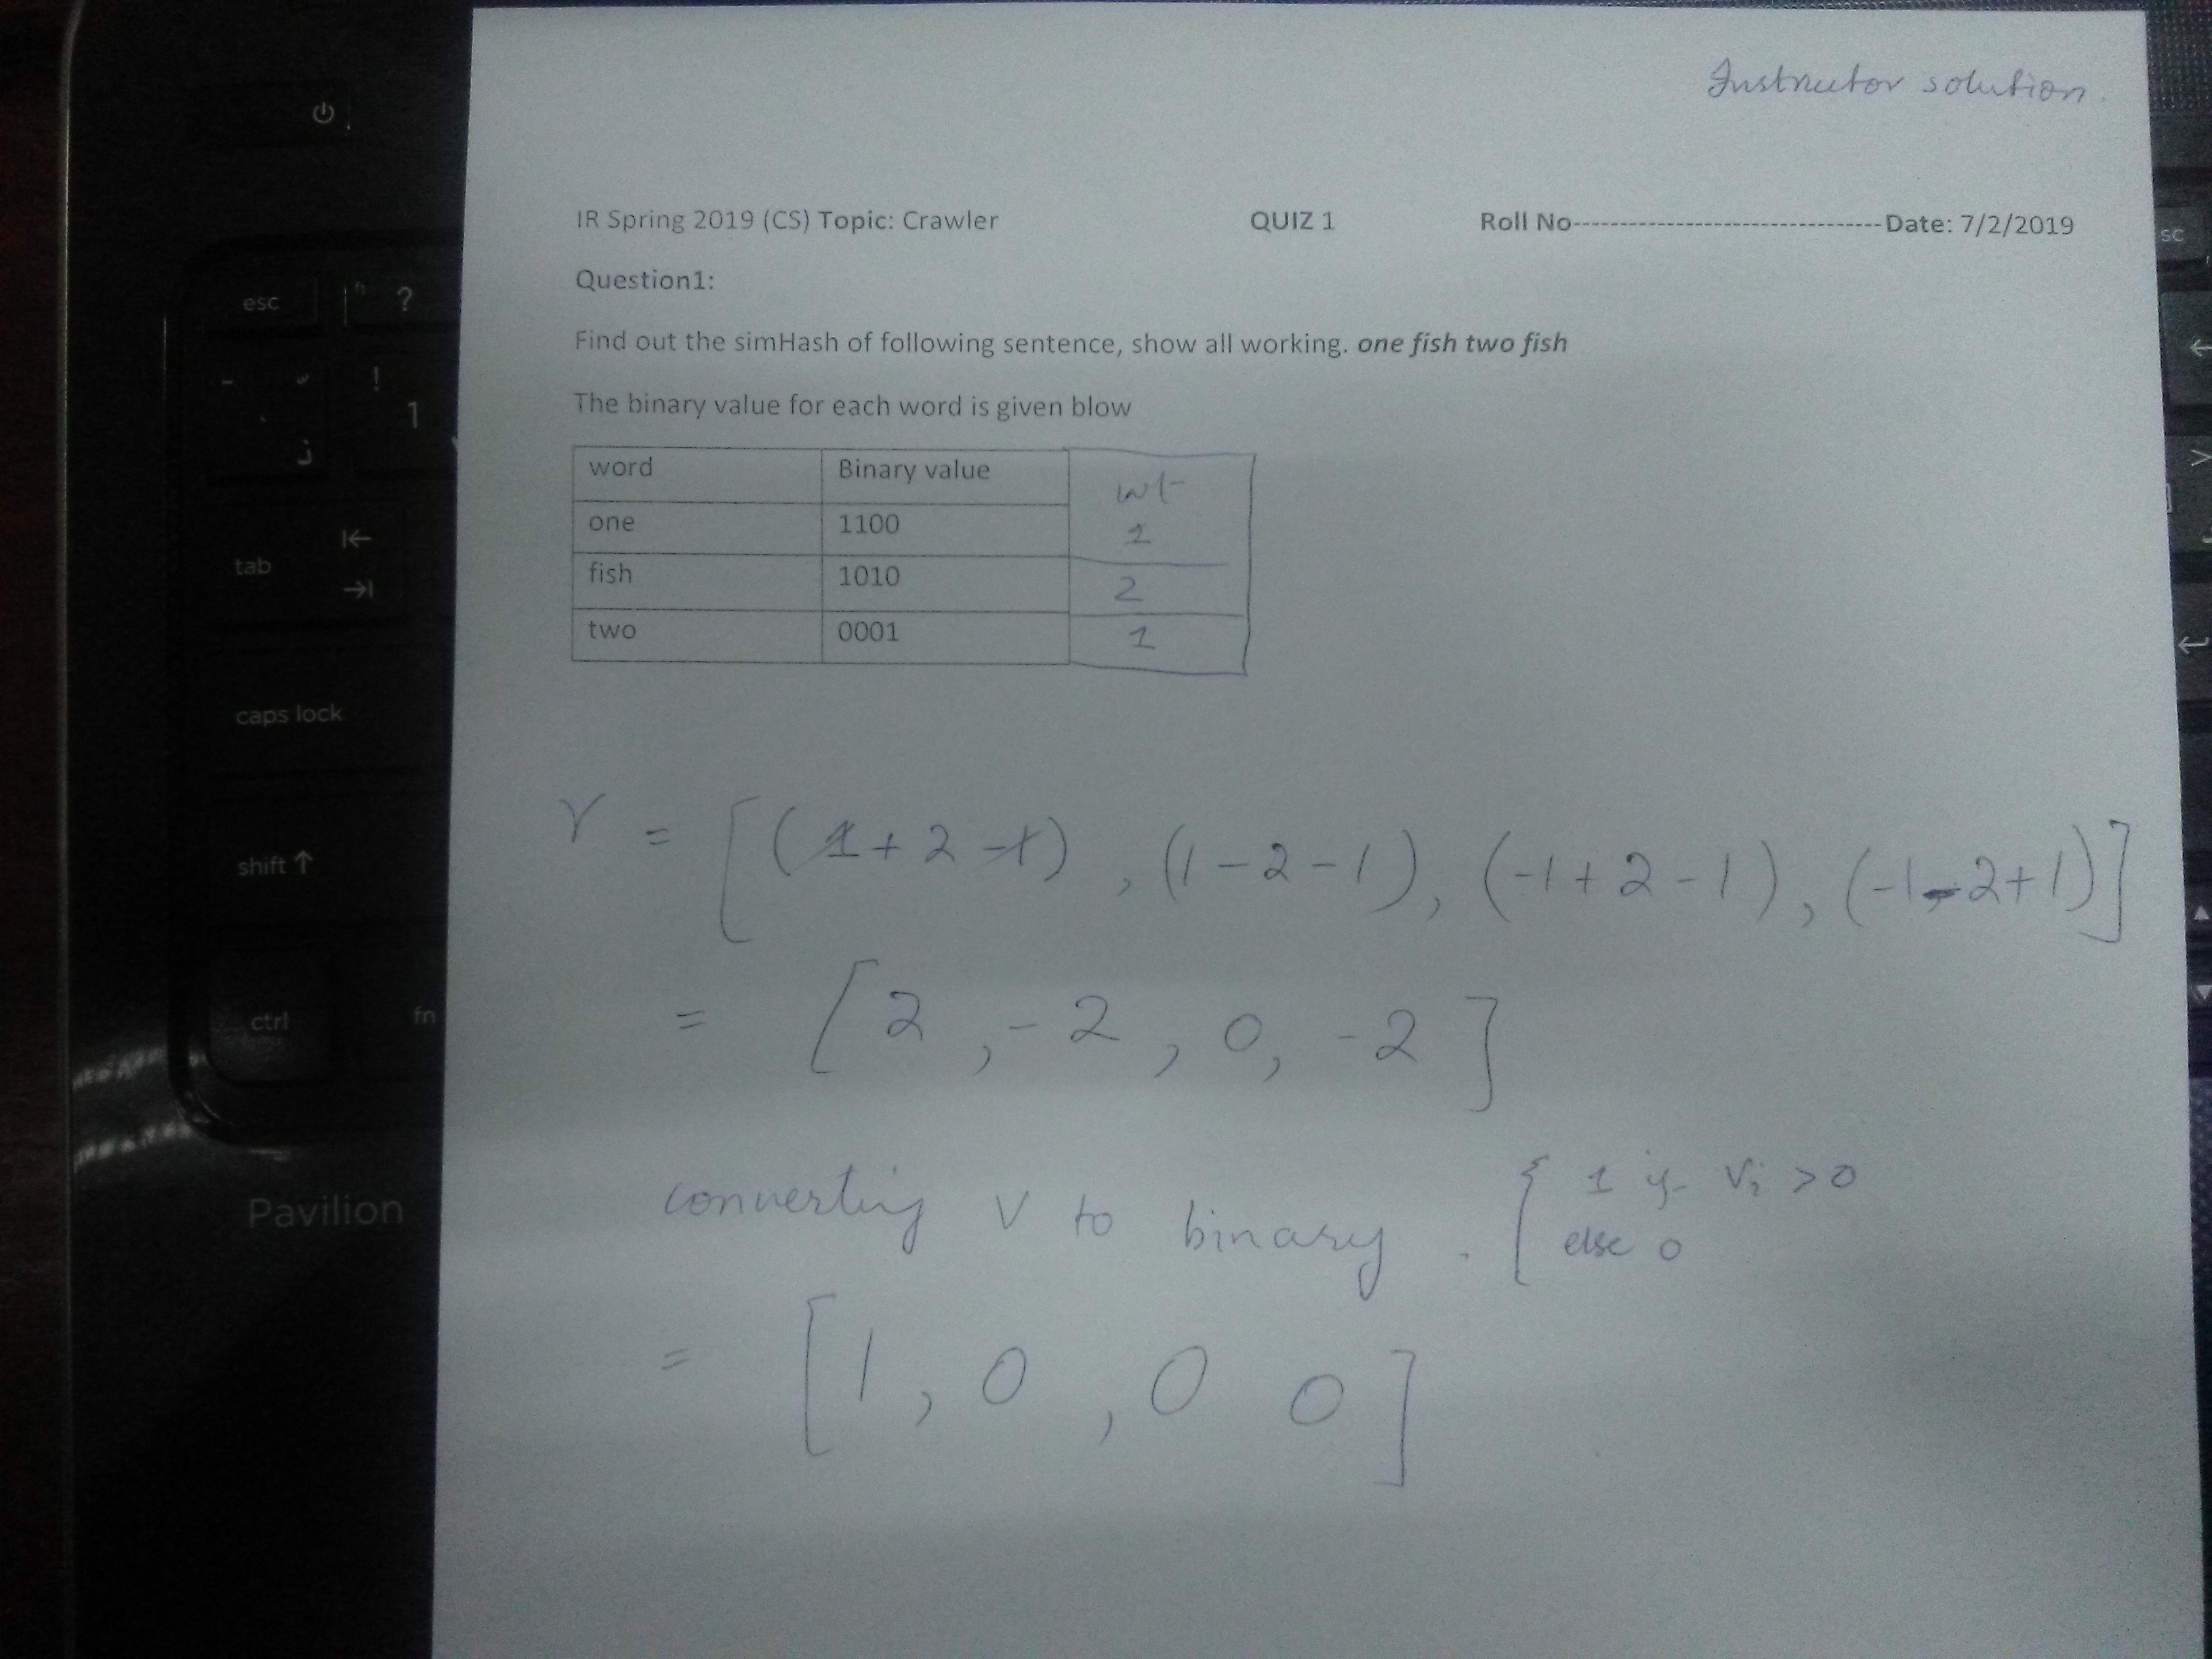 Instructor solution.
IR Spring 2019 (CS) Topic: Crawler QUIZ 1 Roll No--------------------------------Date: 7/2/2019
Question1:
Find out the simHash of following sentence, show all working. one fish two fish
The binary value for each word is given blow
word Binary value wt
one 1100 1
fish 1010 2
two 0001 1
V = [(1+2-1), (1-2-1), (-1+2-1), (-1-2+1)]
= [2, -2, 0, -2]
converting V to binary. { 1 if Vi >0
else 0
= [1, 0, 0 0]
esc
?
!
1
tab
caps lock
shift
ctrl fn
Pavilion
sc